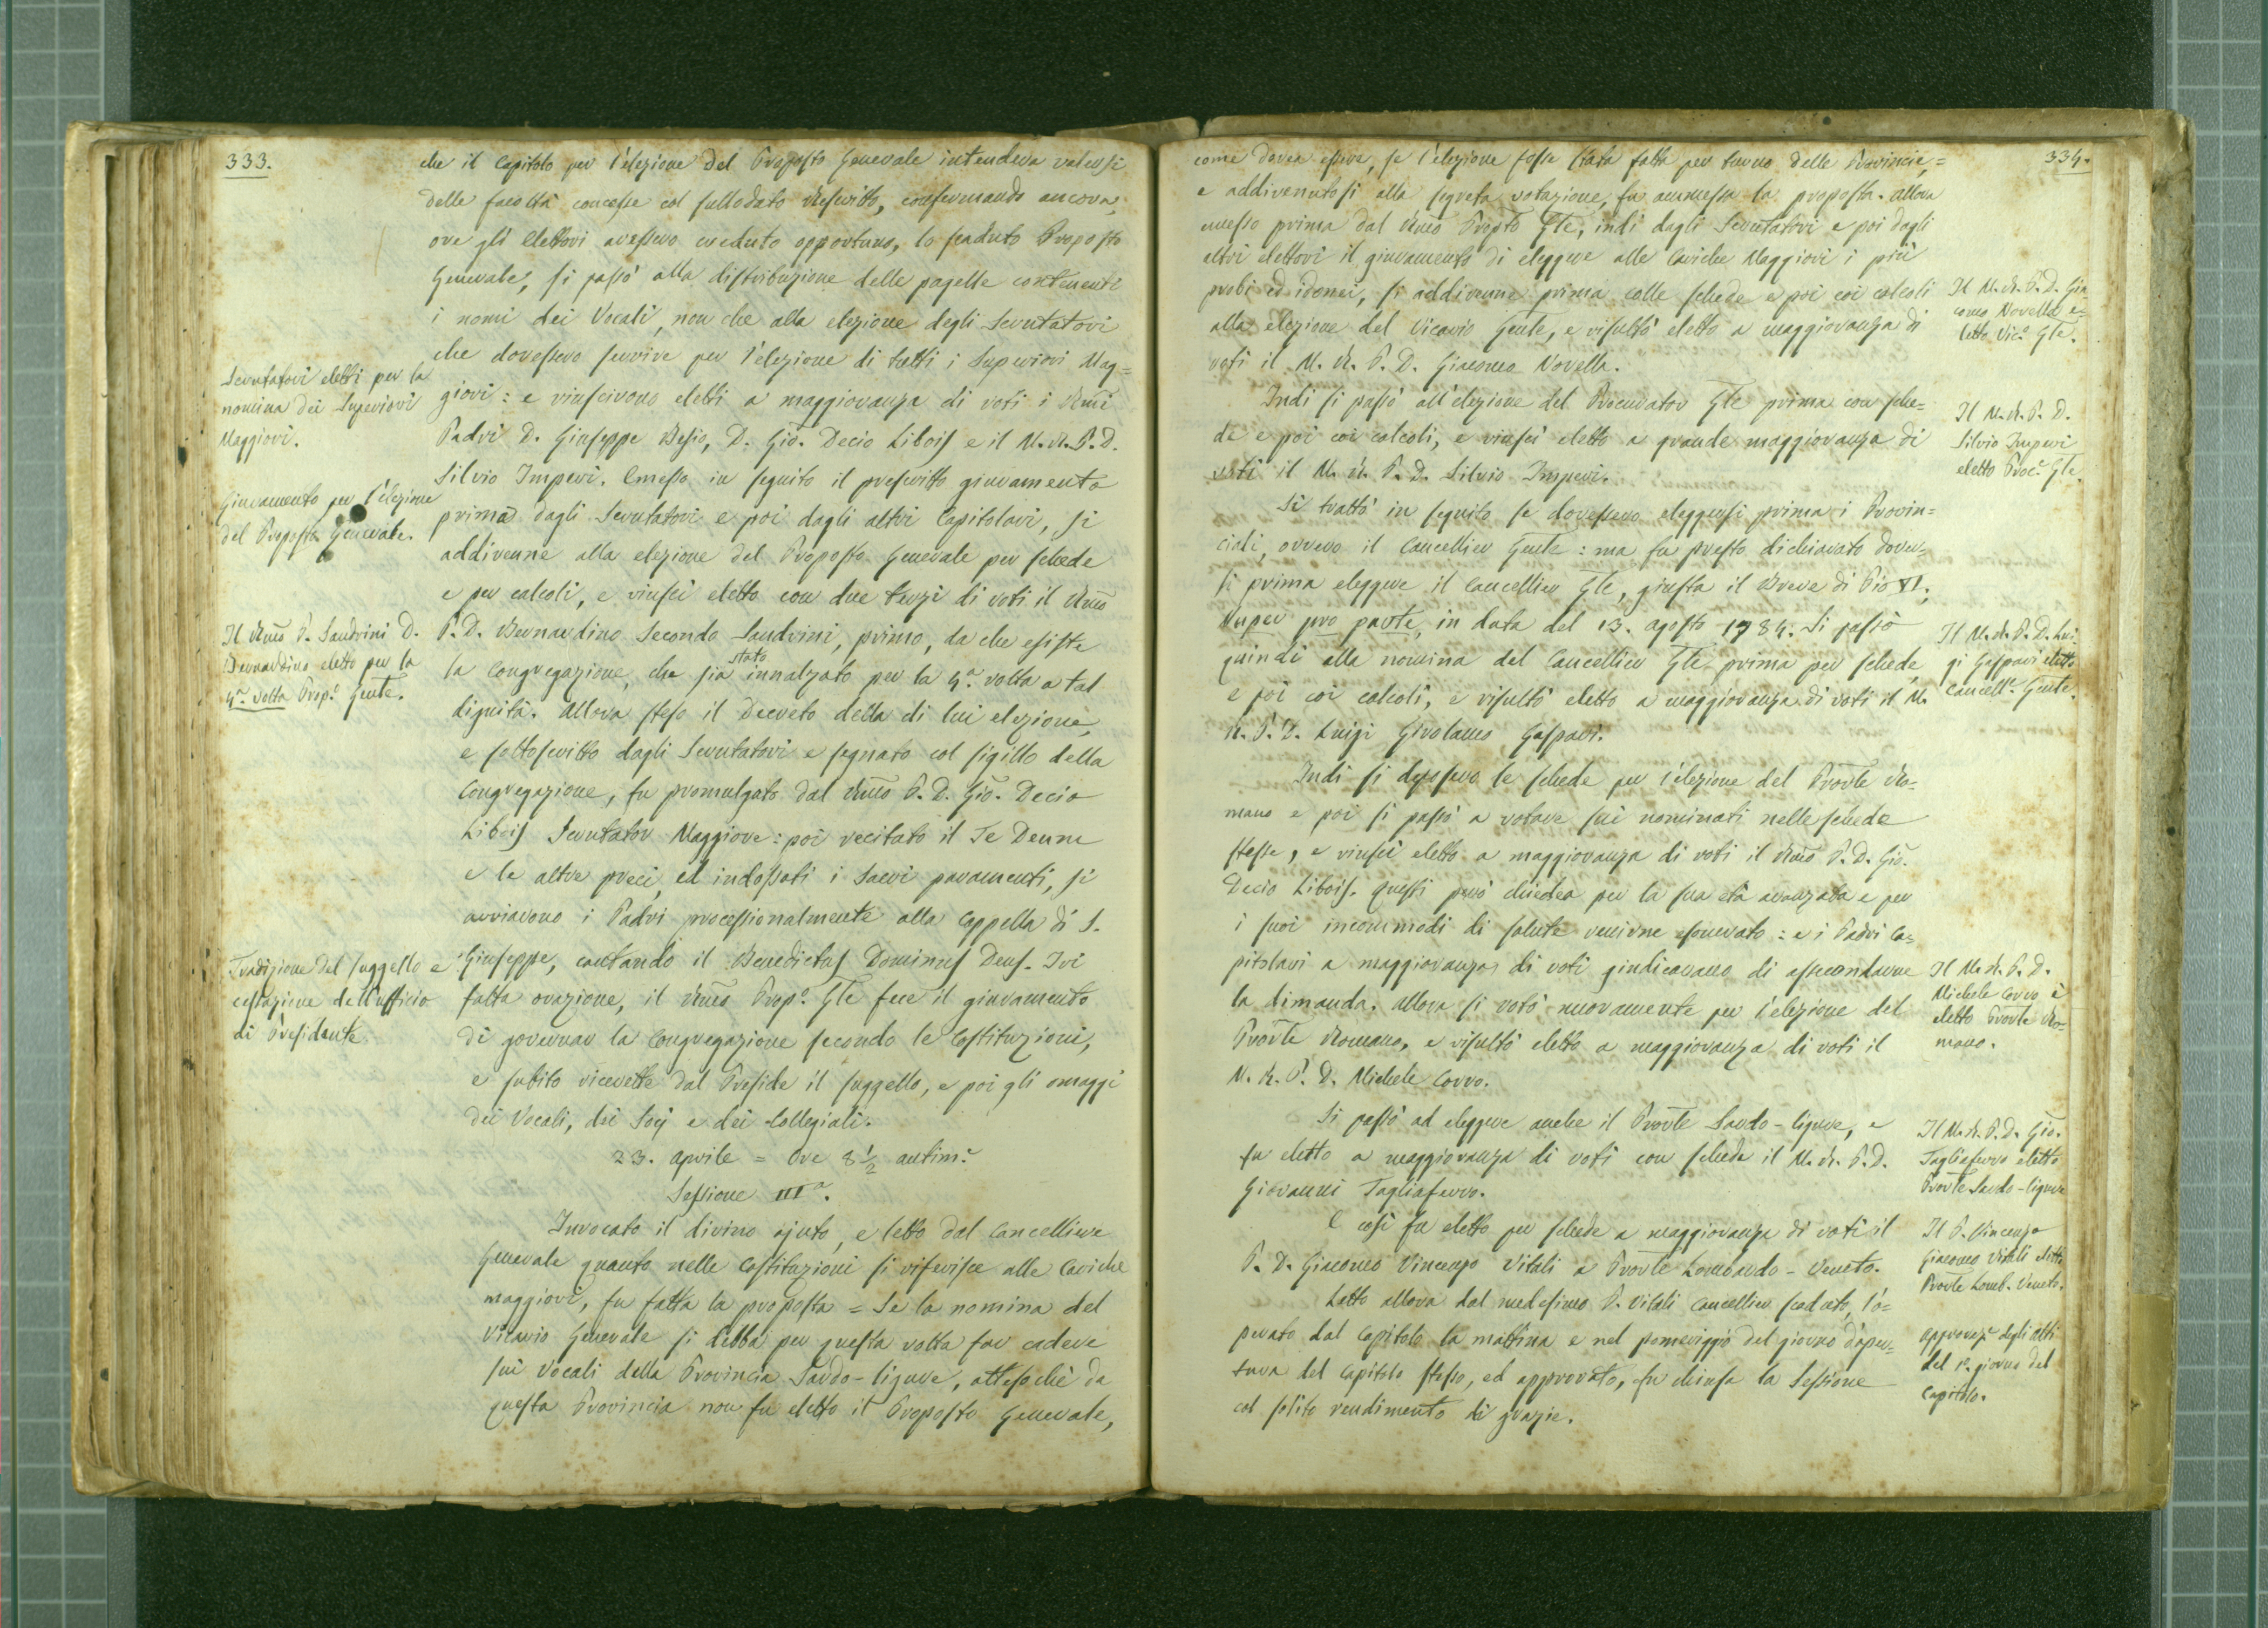 333.
che il Capitolo per l'elezione del Proposto Generale intendeva valersi
delle facoltà concesse col sullodato Rescritto, confermando ancora,
ove gli Elettori avessero creduto opportuno, lo scaduto Proposto
Generale, si passò alla distribuzione delle pagelle contenenti
i nomi dei Vocali, non che alla elezione degli Scrutatori
che dovessero servire per l'elezione di tutti i Superiori Mag=
giori: e riuscirono eletti a maggioranza di voti i Rmi
Padri D. Giuseppe Besio, D. Gio. Decio Libois e il M. R. P. D.
Silvio Imperi. Emesso in seguito il prescritto giuramento
prima dagli Scrutatori e poi dagli altri Capitolari, si
addivenne alla elezione del Proposto Generale per schede
e per calcoli, e riuscì eletto con due terzi di voti il Rmo
P. D. Bernardino Secondo Sandrini, primo, da che esiste
la Congregazione, che sia stato innalzato per la 4a. volta a tal
dignità. Allora steso il decreto della di lui elezione,
e sottoscritto dagli Scrutatori e segnato col sigillo della
Congregazione, fu promulgato dal Rmo P. D. Gio. Decio
Libois Scrutator Maggiore: poi recitato il Te Deum
e le altre preci, ed indossati i sacri paramenti, si
avviarono i Padri processionalmente alla Cappella di S.
Giuseppe, cantando il Benedictus Dominus Deus. Ivi
fatta orazione, il Rmo Prop.o Gle fece il giuramento
di governar la Congregazione secondo le Costituzioni,
e subito ricevette dal Preside il suggello, e poi gli omaggi
dei Vocali, dei Socj e dei Collegiali.
23. Aprile = Ore 8 1/2 antim.e
Sessione IIIa.
Invocato il divino ajuto, e letto dal Cancelliere
Generale quanto nelle Costituzioni si riferisce alle Cariche
maggiori, fu fatta la proposta = Se la nomina del
Vicario Generale si debba per questa volta far cadere
sui Vocali della Provincia Sardo-ligure, attesochè da
questa Provincia non fu eletto il Proposto Generale,
Scrutatori eletti per la
nomina dei Superiori
Maggiori.
Giuramento per l'elezione
del Proposto Generale.
Il Rmo P. Sandrini D.
Bernardino eletto per la
4a. volta Prep.o Gente.
Tradizione del suggello e
cessazione dell'ufficio
di Presidente
334.
come dovea essere, se l'elezione fosse stata fatta per turno delle Provincie,=
e addivenutosi alla segreta votazione, fu ammessa la proposta. Allora
emesso prima dal Rmo Propto Gle, indi dagli Scrutatori e poi dagli
altri elettori il giuramento di eleggere alle Cariche Maggiori i più
probi ed idonei, si addivenne prima colle schede e poi coi calcoli
alla elezione del Vicario Gente, e risultò eletto a maggioranza di
voti il M. R. P. D. Giacomo Novella.
Indi si passò all'elezione del Procurator Gle prima con sche=
de e poi coi calcoli, e riuscì eletto a grande maggioranza di
voti il M. R. P. D. Silvio Imperi.
Si trattò in seguito se dovessero eleggersi prima i Provin=
ciali, ovvero il Cancellier Gente: ma fu presto dichiarato dover=
si prima eleggere il Cancellier Gle, giusta il Breve di Pio VI.,
Nuper pro parte, in data del 13. Agosto 1784. Si passò
quindi alla nomina del Cancellier Gle prima per schede,
e poi coi calcoli, e risultò eletto a maggioranza di voti il M.
R. P. D. Luigi Girolamo Gaspari.
Indi si deposero le schede per l'elezione del Provle Ro=
mano e poi si passò a votare sui nominati nelle schede
stesse, e riuscì eletto a maggioranza di voti il Rmo P. D. Gio.
Decio Libois. Questi però chiedea per la sua età avanzata e per
i suoi incommodi di salute venirne esonerato: e i Padri Ca=
pitolari a maggioranza di voti giudicavano di assecondarne
la dimanda. Allora si votò nuovamente per l'elezione del
Provle Romano, e risultò eletto a maggioranza di voti il
M. R. P. D. Michele Corvo.
Si passò ad eleggere anche il Provle Sardo-ligure, e
fu eletto a maggioranza di voti con schede il M. R. P. D.
Giovanni Tagliaferro.
E così fu eletto per schede a maggioranza di voti il
P. D. Giacomo Vincenzo Vitali a Provle Lombardo-Veneto.
Letto allora dal medesimo P. Vitali Cancellier scaduto, l'o=
perato dal Capitolo la mattina e nel pomeriggio del giorno d'aper=
tura del Capitolo stesso, ed approvato, fu chiusa la Sessione
col solito rendimento di grazie.
Il M. R. P. D. Gia
como Novella e=
letto Vic.o Gle.
Il M. R. P. D.
Silvio Imperi
eletto Proc.e Gle.
Il M. R. P. D. Lui
gi Gaspari eletto
Cancell.e Gente.
Il M. R. P. D.
Michele Corvo è
eletto Provle Ro=
mano.
Il M. R. P. D. Gio.
Tagliaferro eletto
Provle Sardo-ligure
Il P. Vincenzo
Giacomo Vitali eletto
Provle Lomb. Veneto.
Approvaz.e degli Atti
del 1o. giorno del
Capitolo.